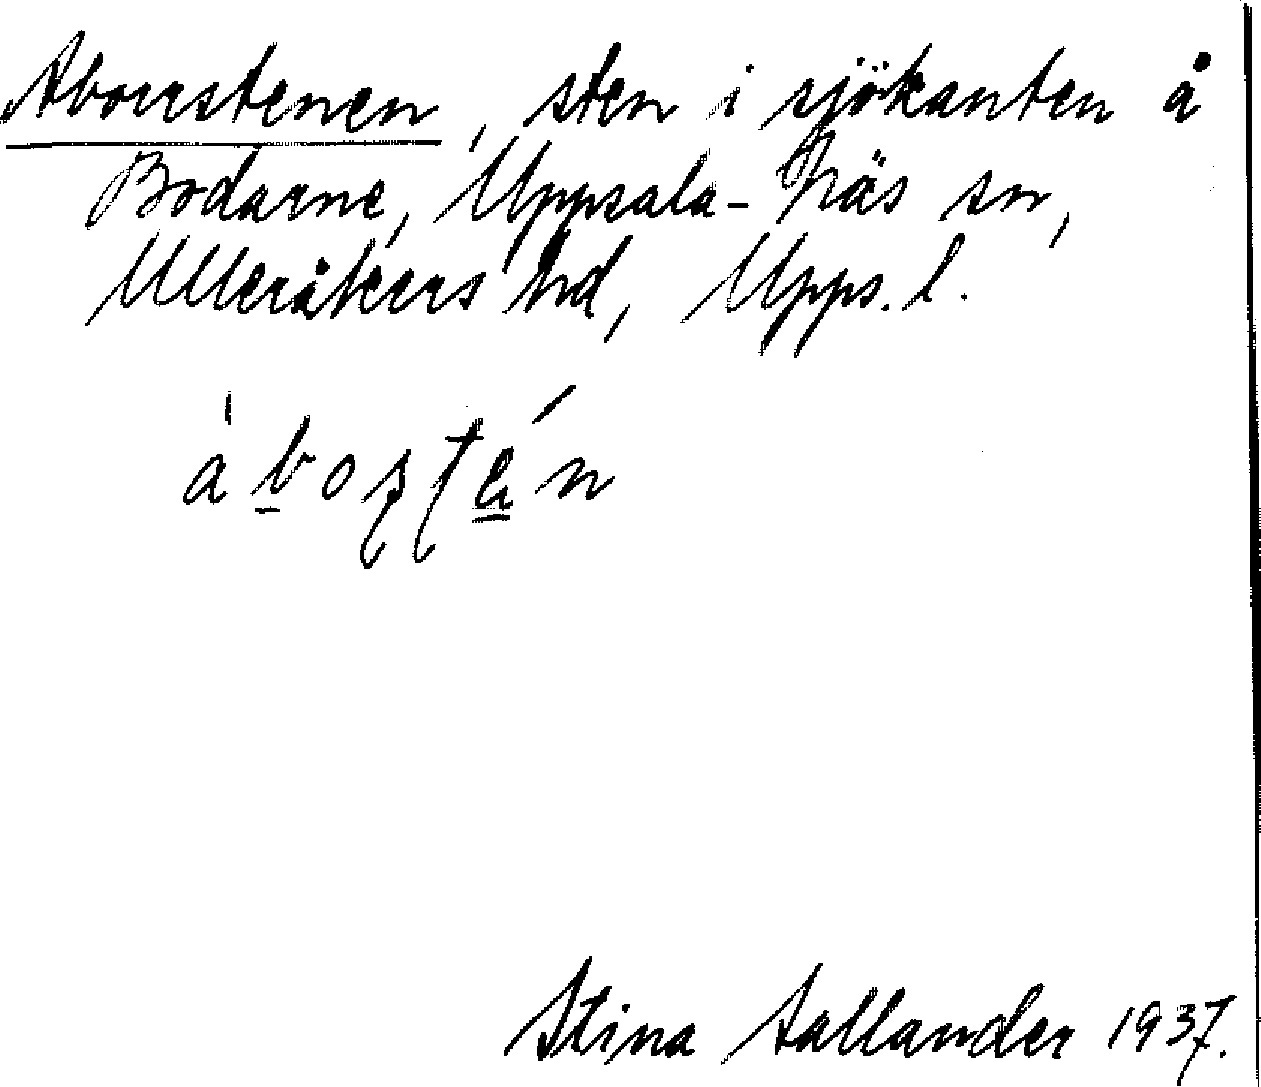 Aborrstenen, sten i sjökanten å
Bodarne, Uppsala-Näs sn,
Ulleråkers hd, Upps. l.
Stina Sallander 1937.